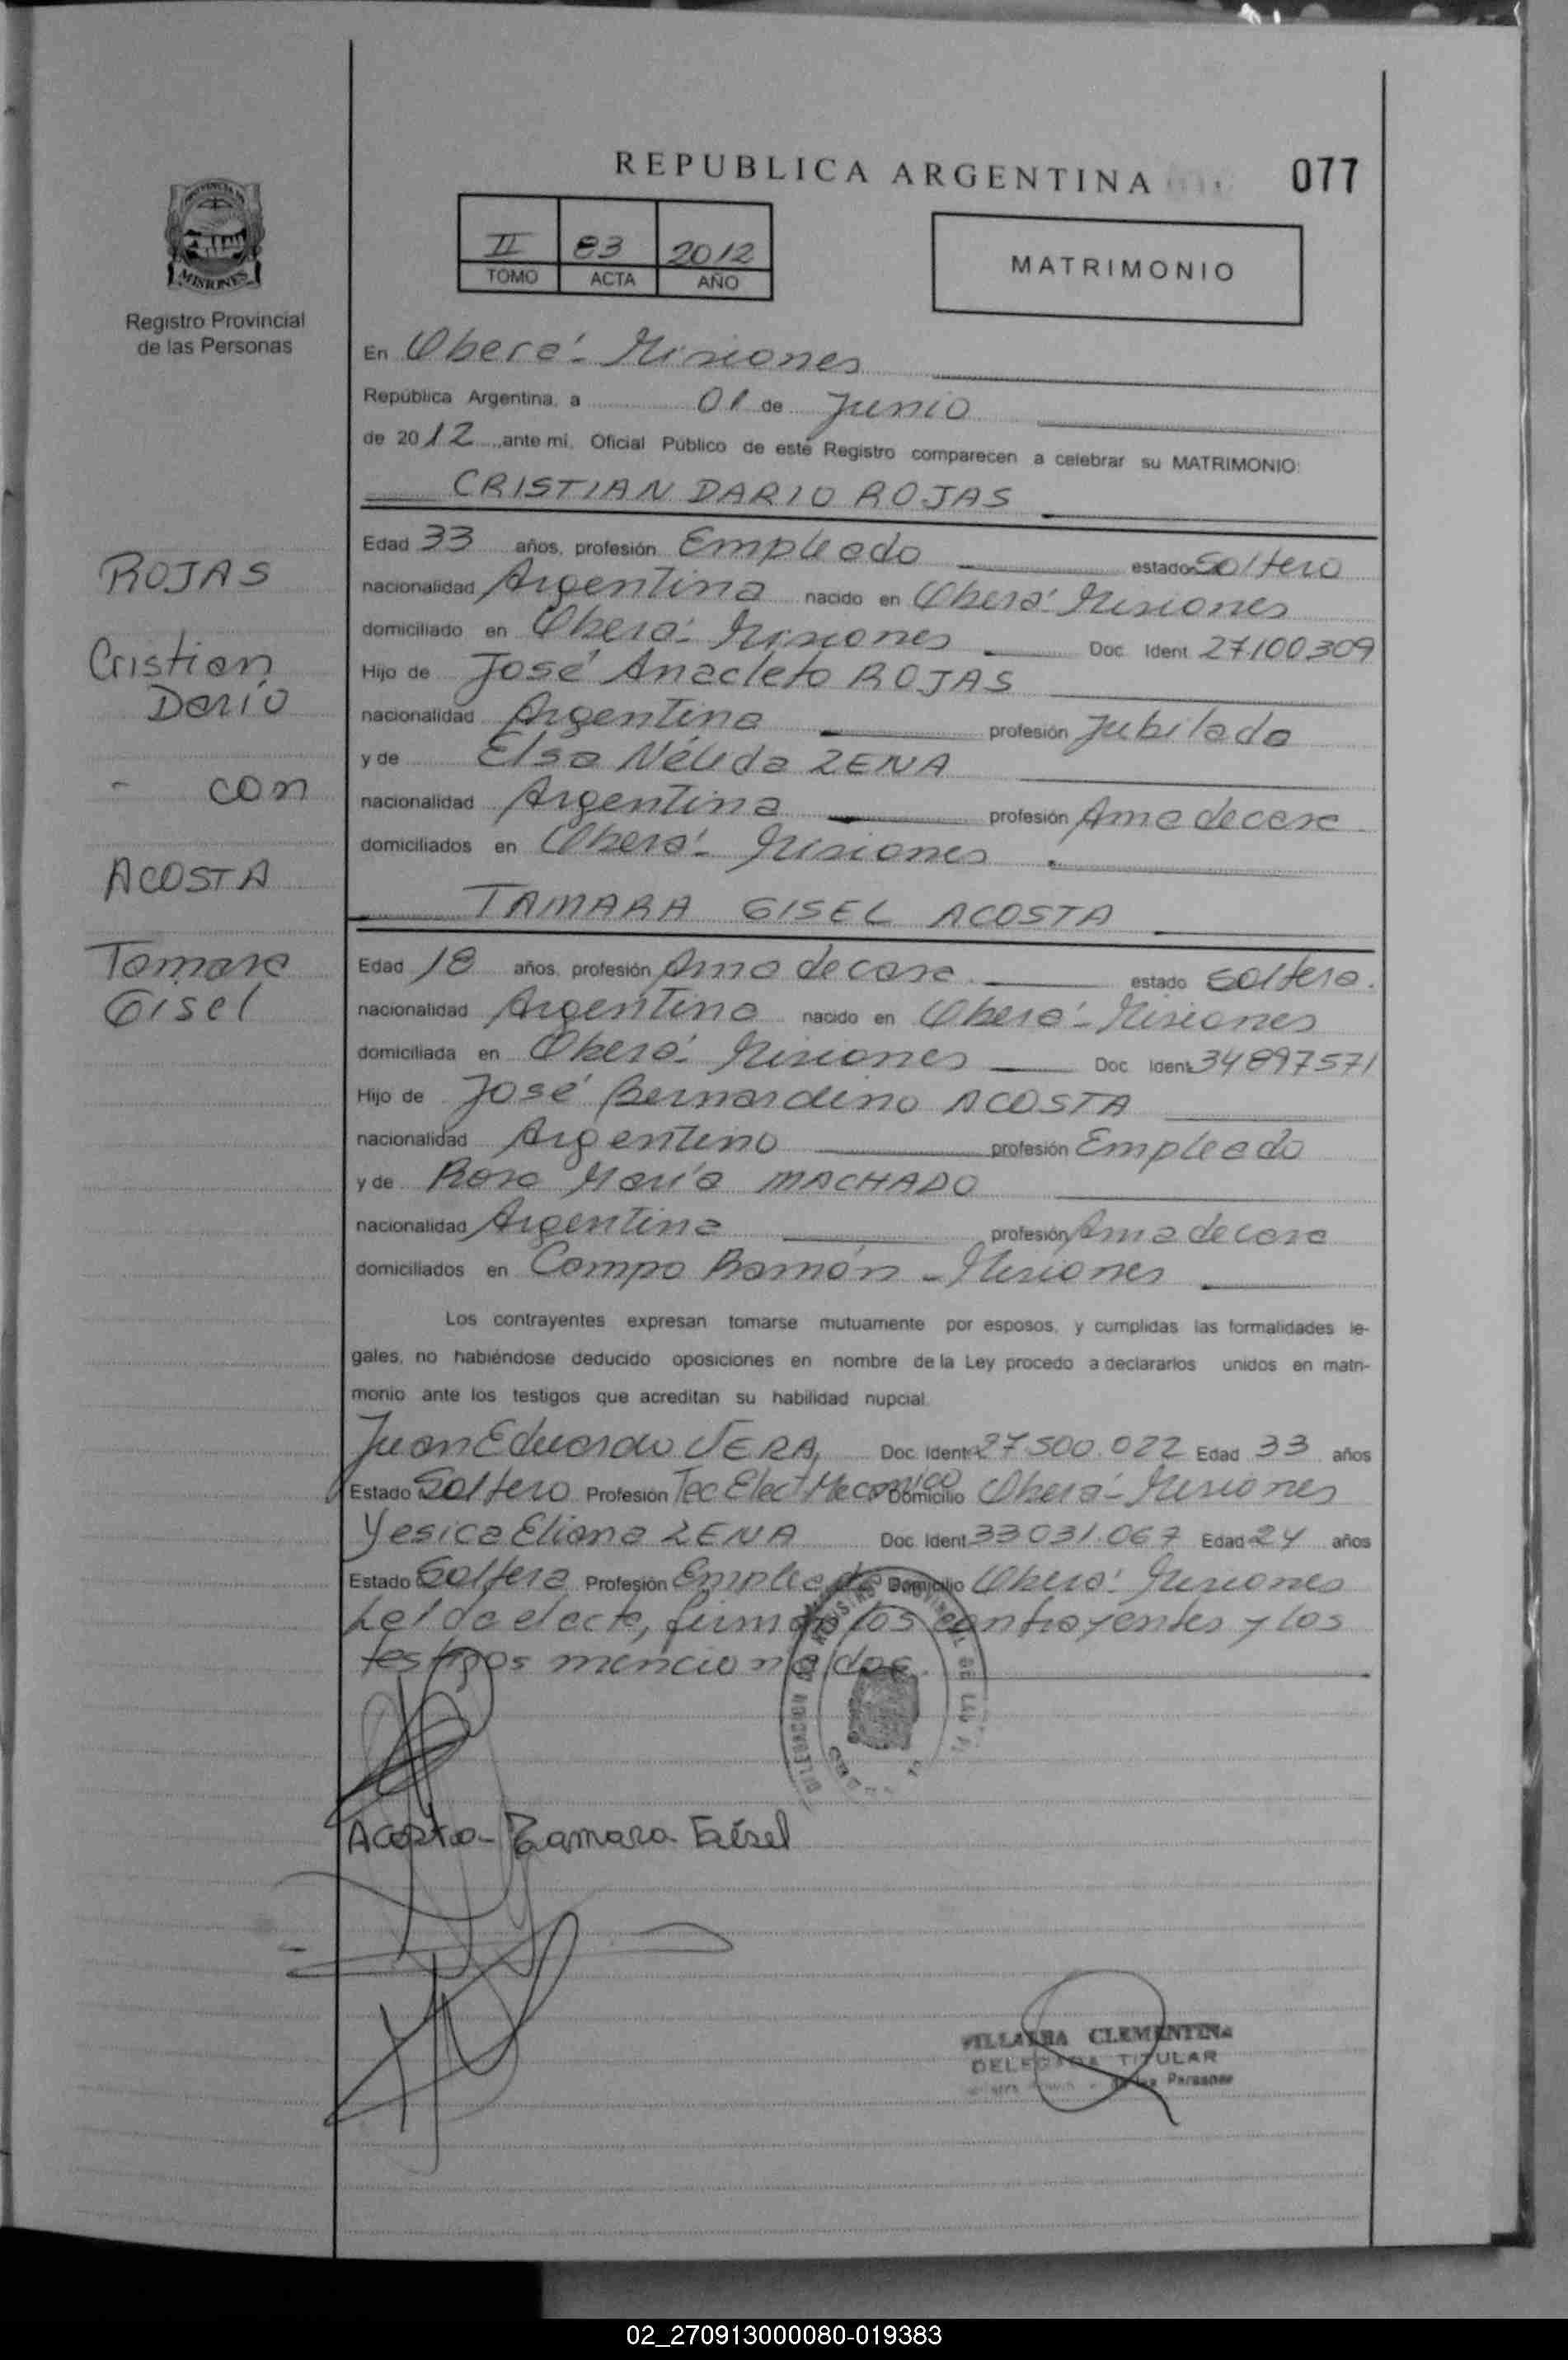 REPUBLICA ARGENTINA 077
PROVINCIA DE
MISIONES
Registro Provincial
de las Personas
II 83 2012
TOMO ACTA AÑO
MATRIMONIO
En Oberá - Misiones
República Argentina, a 01 de Junio
de 2012 ante mí, Oficial Público de este Registro comparecen a celebrar su MATRIMONIO:
CRISTIAN DARIO ROJAS
Edad 33 años, profesión Empleado estado Soltero
nacionalidad Argentina nacido en Oberá - Misiones
domiciliado en Oberá - Misiones Doc. Ident. 27.100.309
Hijo de José Anacleto ROJAS
nacionalidad Argentina profesión Jubilado
y de Elsa Nélida ZENA
nacionalidad Argentina profesión Ama de casa
domiciliados en Oberá - Misiones
TAMARA GISEL ACOSTA
Edad 18 años, profesión Ama de casa estado soltera.
nacionalidad Argentina nacido en Oberá - Misiones
domiciliada en Oberá - Misiones Doc. Ident. 34897571
Hijo de José Bernardino ACOSTA
nacionalidad Argentino profesión Empleado
y de Rosa María MACHADO
nacionalidad Argentina profesión Ama de casa
domiciliados en Campo Ramón - Misiones
Los contrayentes expresan tomarse mutuamente por esposos, y cumplidas las formalidades le-
gales, no habiéndose deducido oposiciones en nombre de la Ley procedo a declararlos unidos en matri-
monio ante los testigos que acreditan su habilidad nupcial.
Juan Eduardo VERA, Doc. Ident. 27.500.022 Edad 33 años
Estado Soltero Profesión Tec Elect Mecanico Domicilio Oberá - Misiones
Yesica Eliana ZENA Doc. Ident. 33.031.067 Edad 24 años
Estado Soltera Profesión Empleada Domicilio Oberá - Misiones
Leída el acta, firman los contrayentes y los
testigos mencionados.
ROJAS
Cristian
Darío
- con
ACOSTA
Tamara
Gisel
Acosta Tamara Gisel
CLEMENTINA
DELEGADA TITULAR
Personas
02_270913000080-019383